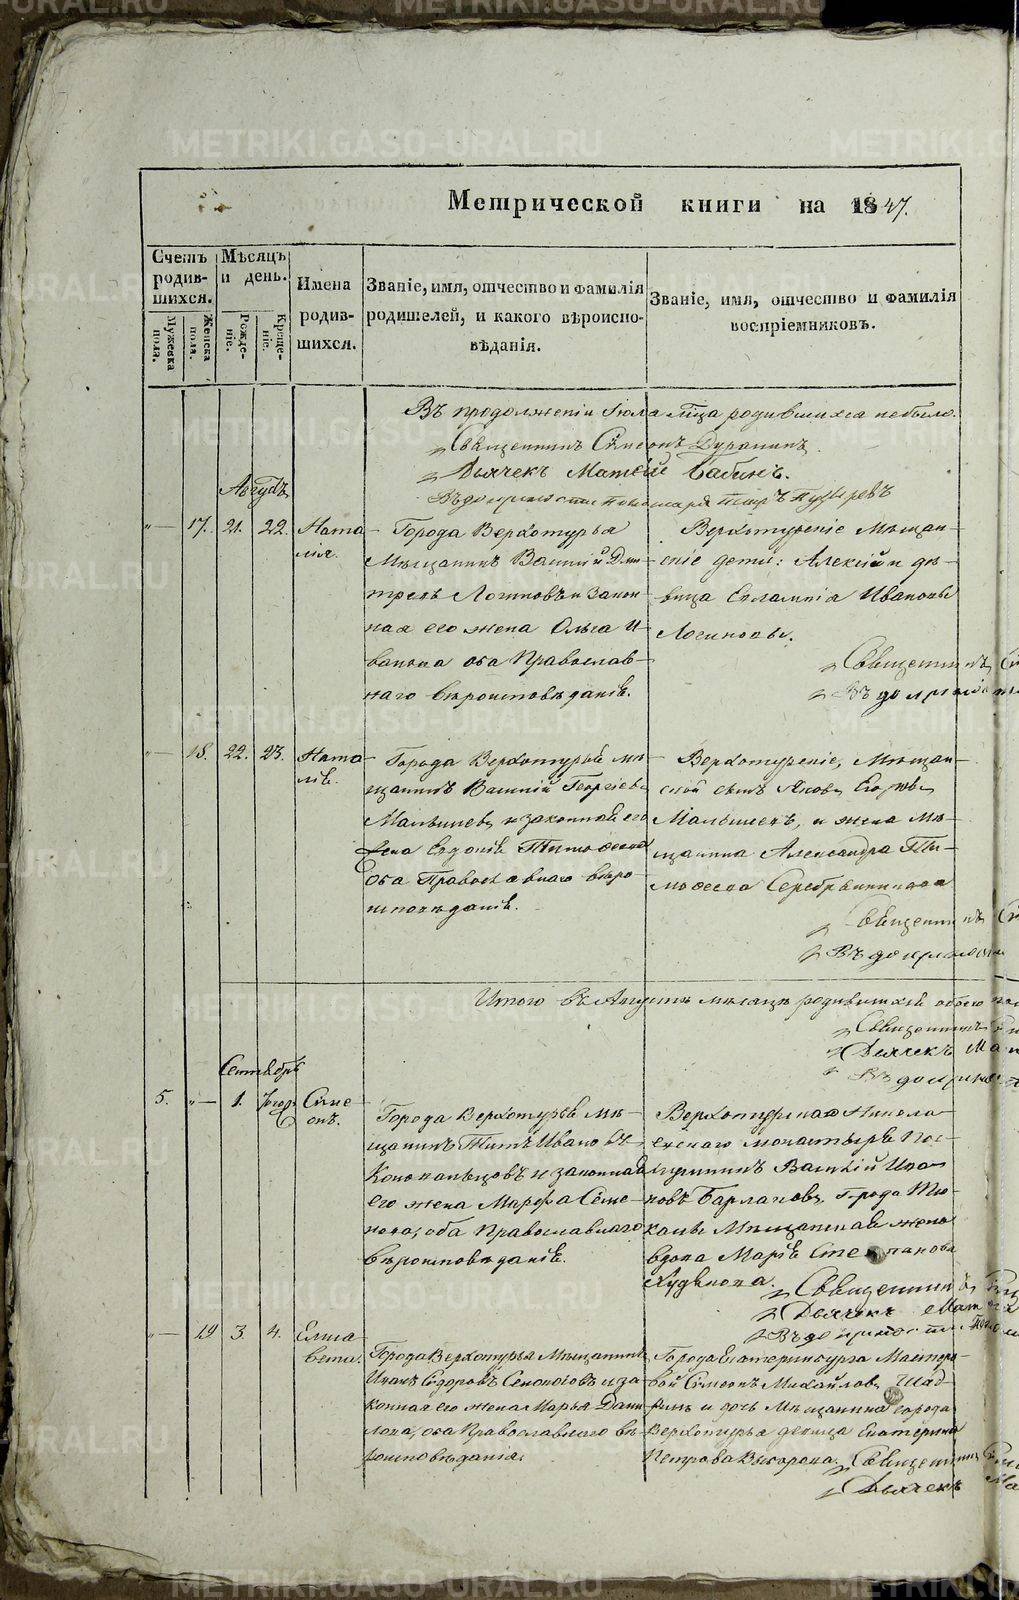 METRIKI.GASO-URAL.RU
Метрической книги на 1847.
Счетъ родив-шихся.
Мужеска пола.
Женска пола.
Мѣсяцъ и день.
Рожде-ніе.
Креще-ніе.
Имена родив-шихся.
Званіе, имя, отчество и фамилія родителей, и какого вѣроиспо-вѣданія.
Званіе, имя, отчество и фамилія воспріемниковъ.
Въ продолженіи Іюла мца родившихся небыло.
Священникъ Симеонъ
Дьячекъ Матѳей Бабинъ.
Въ должности пономаря
Августъ
"— 17. 21. 22. Ната-
лія.
Города Верхотурья
Мѣщанинъ Василій Дми-
Логиновъ и закон-
ная его жена Ольга И-
ванова оба Православ-
наго вѣроисповѣданія.
Верхотурскіе Мѣщан-
скіе дети: Алексій и дѣ-
вица Евлампіа Ивановы
Логиновы.
Священникъ
Въ должнос
"— 18. 22. 23. Ната-
лія.
Города Верхотурья мѣ-
щанинъ Василій Георгіевъ
Малышевъ и законная его
жена Евдокія Тимоѳеева
оба Православнаго вѣро-
исповѣданія.
Верхотурскіе, Мѣщан-
ской сынъ Яковъ Егоровъ
Малышевъ, и жена мѣ-
щанина Александра Ти-
моѳеева Серебрянникова
Священникъ
Въ должнос
Итого въ Августѣ мѣсяцѣ родившихся обоего пол
Священникъ
Дьячекъ Ма
Въ должнос
Сентябрь
5. "— 1. Симе-
онъ.
Города Верхотурья мѣ-
щанинъ Титъ Ивановъ
и законная
его жена Марфа Симе-
онова, оба Православнаго
вѣроисповѣданія.
Верхотурскаго Никола-
евскаго монастыря Пос-
лушникъ Василій Ива-
новъ Города Тю-
мени Мѣщанская жена
вдова Марія Степанова
Худякова.
Священникъ
Дьячекъ Матѳей
Въ должности Поном
"— 19 3. 4. Елиса-
вета.
Города Верхотурья Мѣщанинъ
Иванъ Ѳедоровъ и за-
конная его жена Марья Дани-
лова, оба Православнаго вѣ-
роисповѣданія.
Города Екатеринбурга Мастеро-
вой Симеонъ Михайловъ
и дочь Мѣщанина города
Верхотурья девица Екатерина
Петрова
Священникъ
Дьячекъ